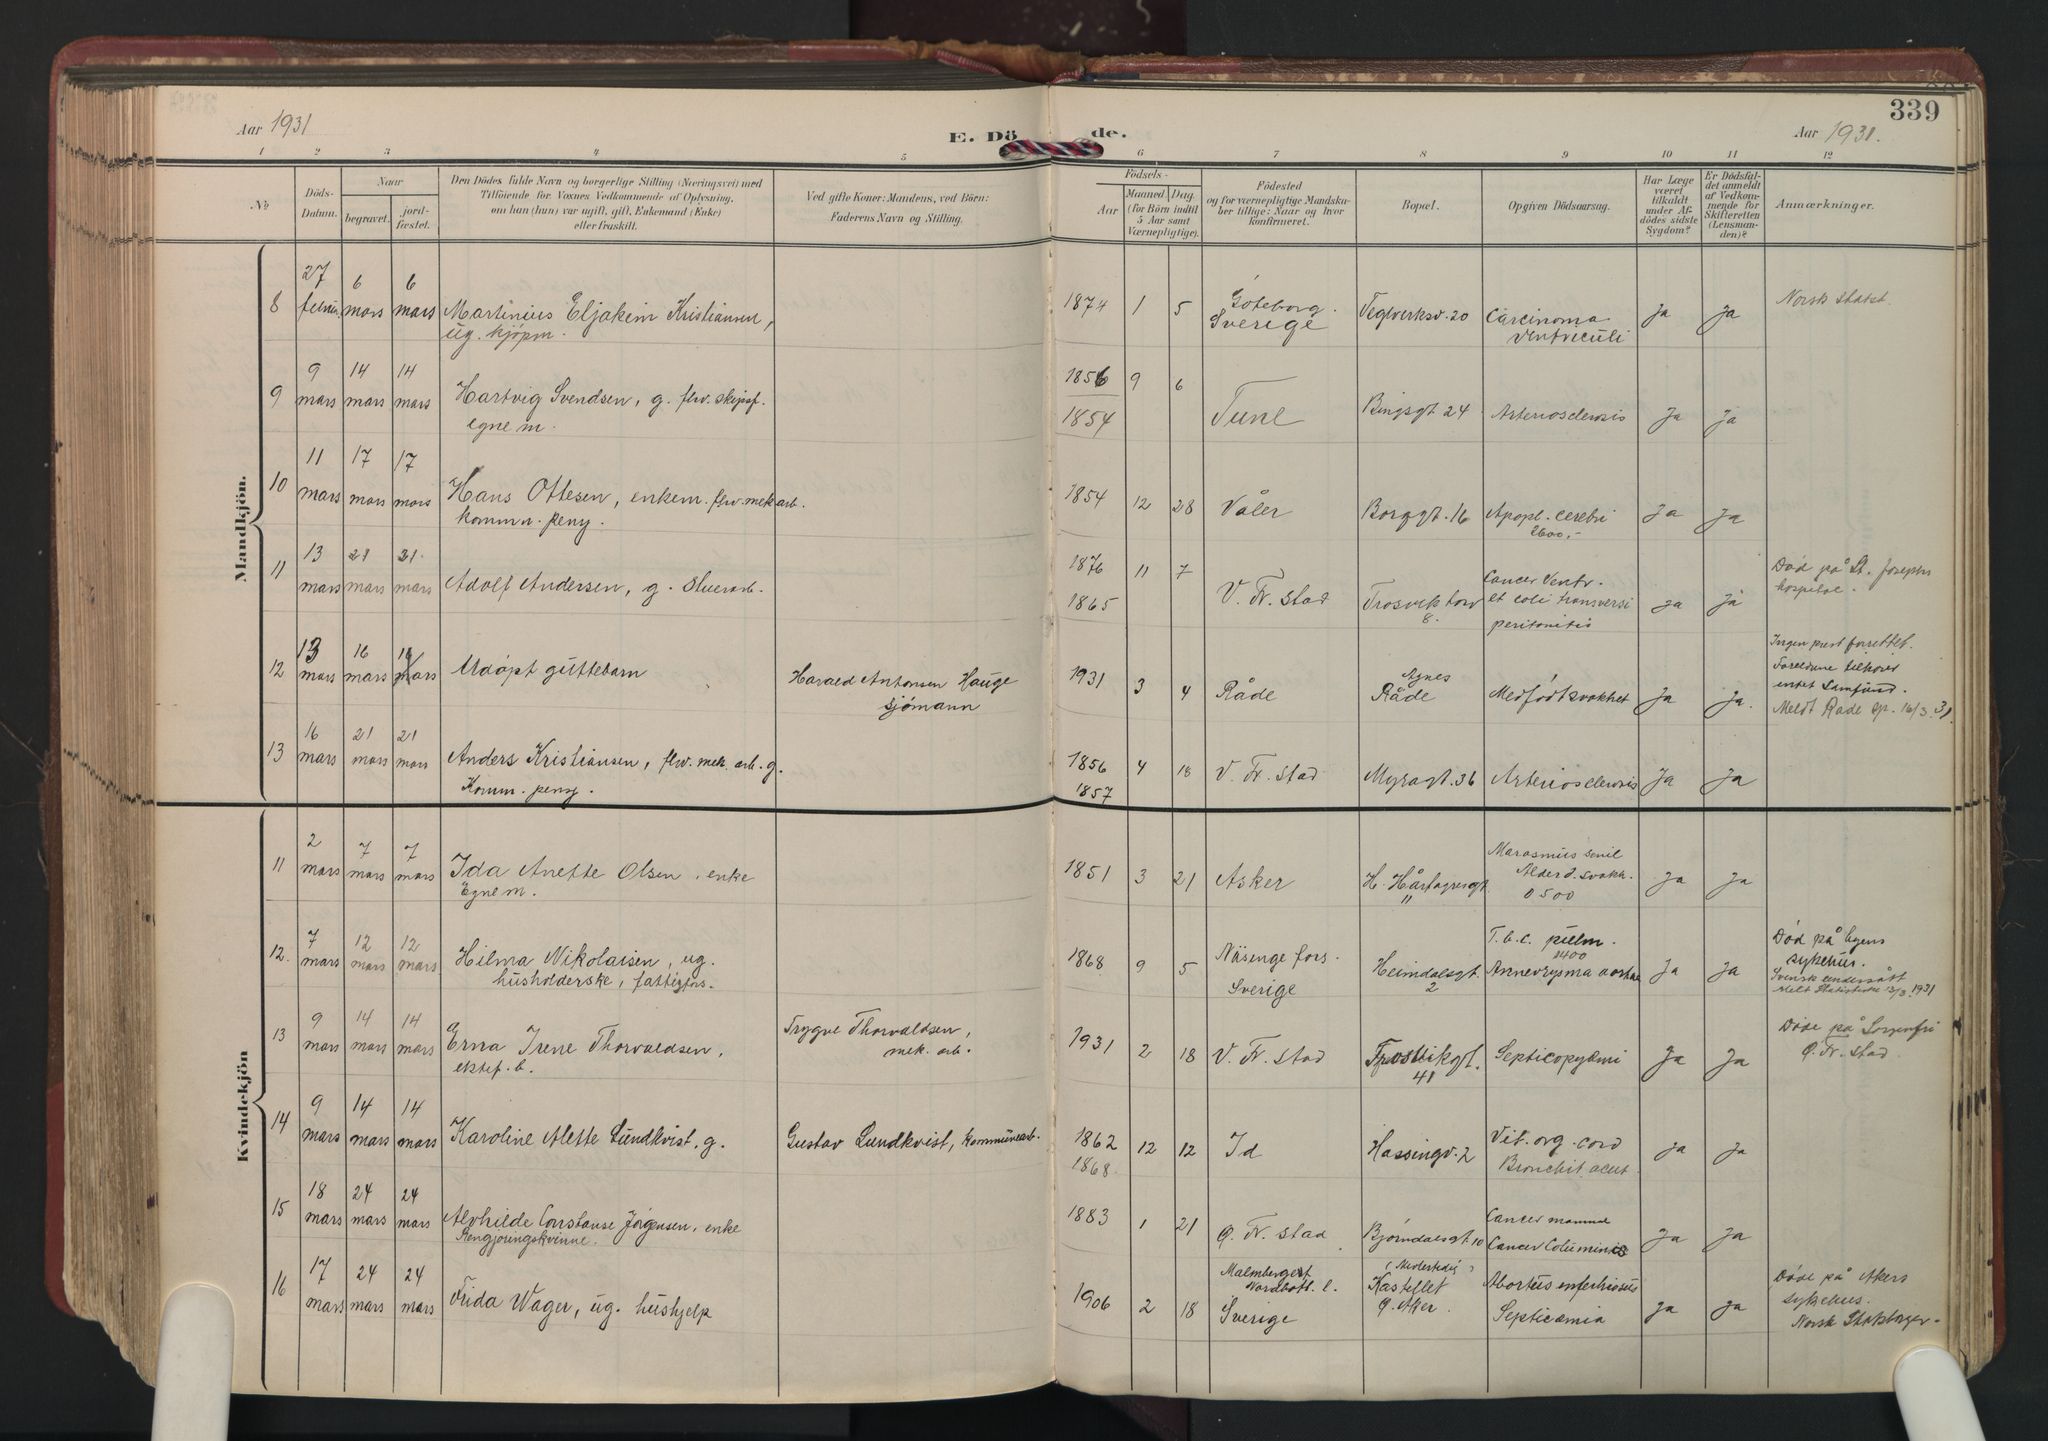 339
Aar 1931
E. Dö de.
Aar 1931.
1 2 3 4 5 6 7 8 9 10 11 12
No
Döds-
Datum.
Naar
begravet.
jord-
fæstet.
Den Dödes fulde Navn og borgerlige Stilling (Næringsvei) med
Tilföiende for Voxnes Vedkommende af Oplysning,
om han (hun) var ugift, gift, Enkemand (Enke)
eller fraskilt.
Ved gifte Koner: Mandens, ved Börn:
Faderens Navn og Stilling.
Födsels-
Aar
Maaned
Dag
(for Börn indtil
5 Aar samt
Værnepligtige).
Födested
og for værnepligtige Mandska-
ber tillige: Naar og hvor
konfirmeret.
Bopæl.
Opgiven Dödsaarsag.
Har Læge
været
tilkaldt
under Af-
dödes sidste
Sygdom?
Er Dödsfal-
det anmeldt
af Vedkom-
mende for
Skifteretten
(Lensman-
den)?
Anmærkninger.
Mandkjön.
8 27 februar 6 mars 6 mars Martinius Eljakim Kristiansen,
ug. kjöpm.
1874 1 5 Göteborg.
Sverige
Teglverksv. 20 Carcinoma
ventriculi
Ja Ja Norsk statsb.
9 9 mars 14 mars 14 mars Hartvig Svendsen, g. flrv. skipsf.
egne m.
1856 9 6
1854
Tune Bingsgt 24 Arteriosclerosis Ja Ja
10 11 mars 17 mars 17 mars Hans Ottesen, enkem. flrv. mek arb.
komm. pens.
1854 12 28 Våler Borggt. 16 Apopl. cerebri
2600,-
Ja Ja
11 13 mars 21 mars 21 mars Adolf Andersen, g. Stuerarb.
1876 11 7
1865
V. Fr. stad Trosvik torv
8.
Cancer Ventr.
et coli transversi
peritonitis
Ja Ja Död på St. Josephs
hospital.
12 13 mars 16 mars 16 mars Udöpt guttebarn
Harald Antonsen Hauge
sjömann
1931 3 4 Råde Agnes
Råde
Medfödt svakhet Ja Ja.
Ingen prest forrettet.
Foreldrene tilhører
intet Samfund.
Meldt Råde sp. 16/3 31.
13 16 mars 21 mars 21 mars Anders Kristiansen, flrv. mek. arb. g.
Komm. pens.
1856 4 18
1857
V. Fr. stad Myragt. 36 Arteriosclerosis Ja Ja
Kvindekjön
11 2 mars 7 mars 7 mars Ida Anette Olsen, enke
Egne m.
1851 3 21 Asker H. Hårfagresgt.
11
Marasmus senil
Alderd. svakh.
0500
Ja Ja
12. 7 mars 12 mars 12 mars Hilma Nikolaisen, ug.
husholderske, fattigfors.
1868 9 5 Näsinge fors.
Sverige
Heimdalsgt.
2
T.b.c. pulm.
1400
Annevrysma aortae
Ja Ja Död på byens
sykehus.
Svensk undersått
Meldt Statistiske 13/3 1931
13 9 mars 14 mars 14 mars Erna Irene Thorvaldsen,
ektef. b.
Trygve Thorvaldsen,
mek. arb.
1931 2 18 V. Fr. stad Trosvikgt.
41
Septicopyämi Ja Ja Döde på Sorgenfri
Ø. Fr. stad.
14 9 mars 14 mars 14 mars Karoline Alette Lundkvist, g.
Gustav Lundkvist, kommunearb.
1862 12 12
1868.
Id Hassingv. 2 Vit. org. cord
Bronchit. acut.
Ja Ja
15 18 mars 24 mars 24 mars Alvhilde Constanse Jörgensen, enke
Rengjöringskvinne.
1883 1 21 Ø. Fr. stad Bjørndalsgt. 10 Cancer mamma
Cancer Columinis
Ja Ja
16 17 mars 24 mars 24 mars Frida Wager, ug. hushjelp
1906 2 18 Malmberget
Nordbott. l.
Sverige
Kastellet
Ø. Aker.
Abortus infectiosus
Septicæmia
Ja Ja Döde på Akers
sykehus.
Norsk Statsborger.